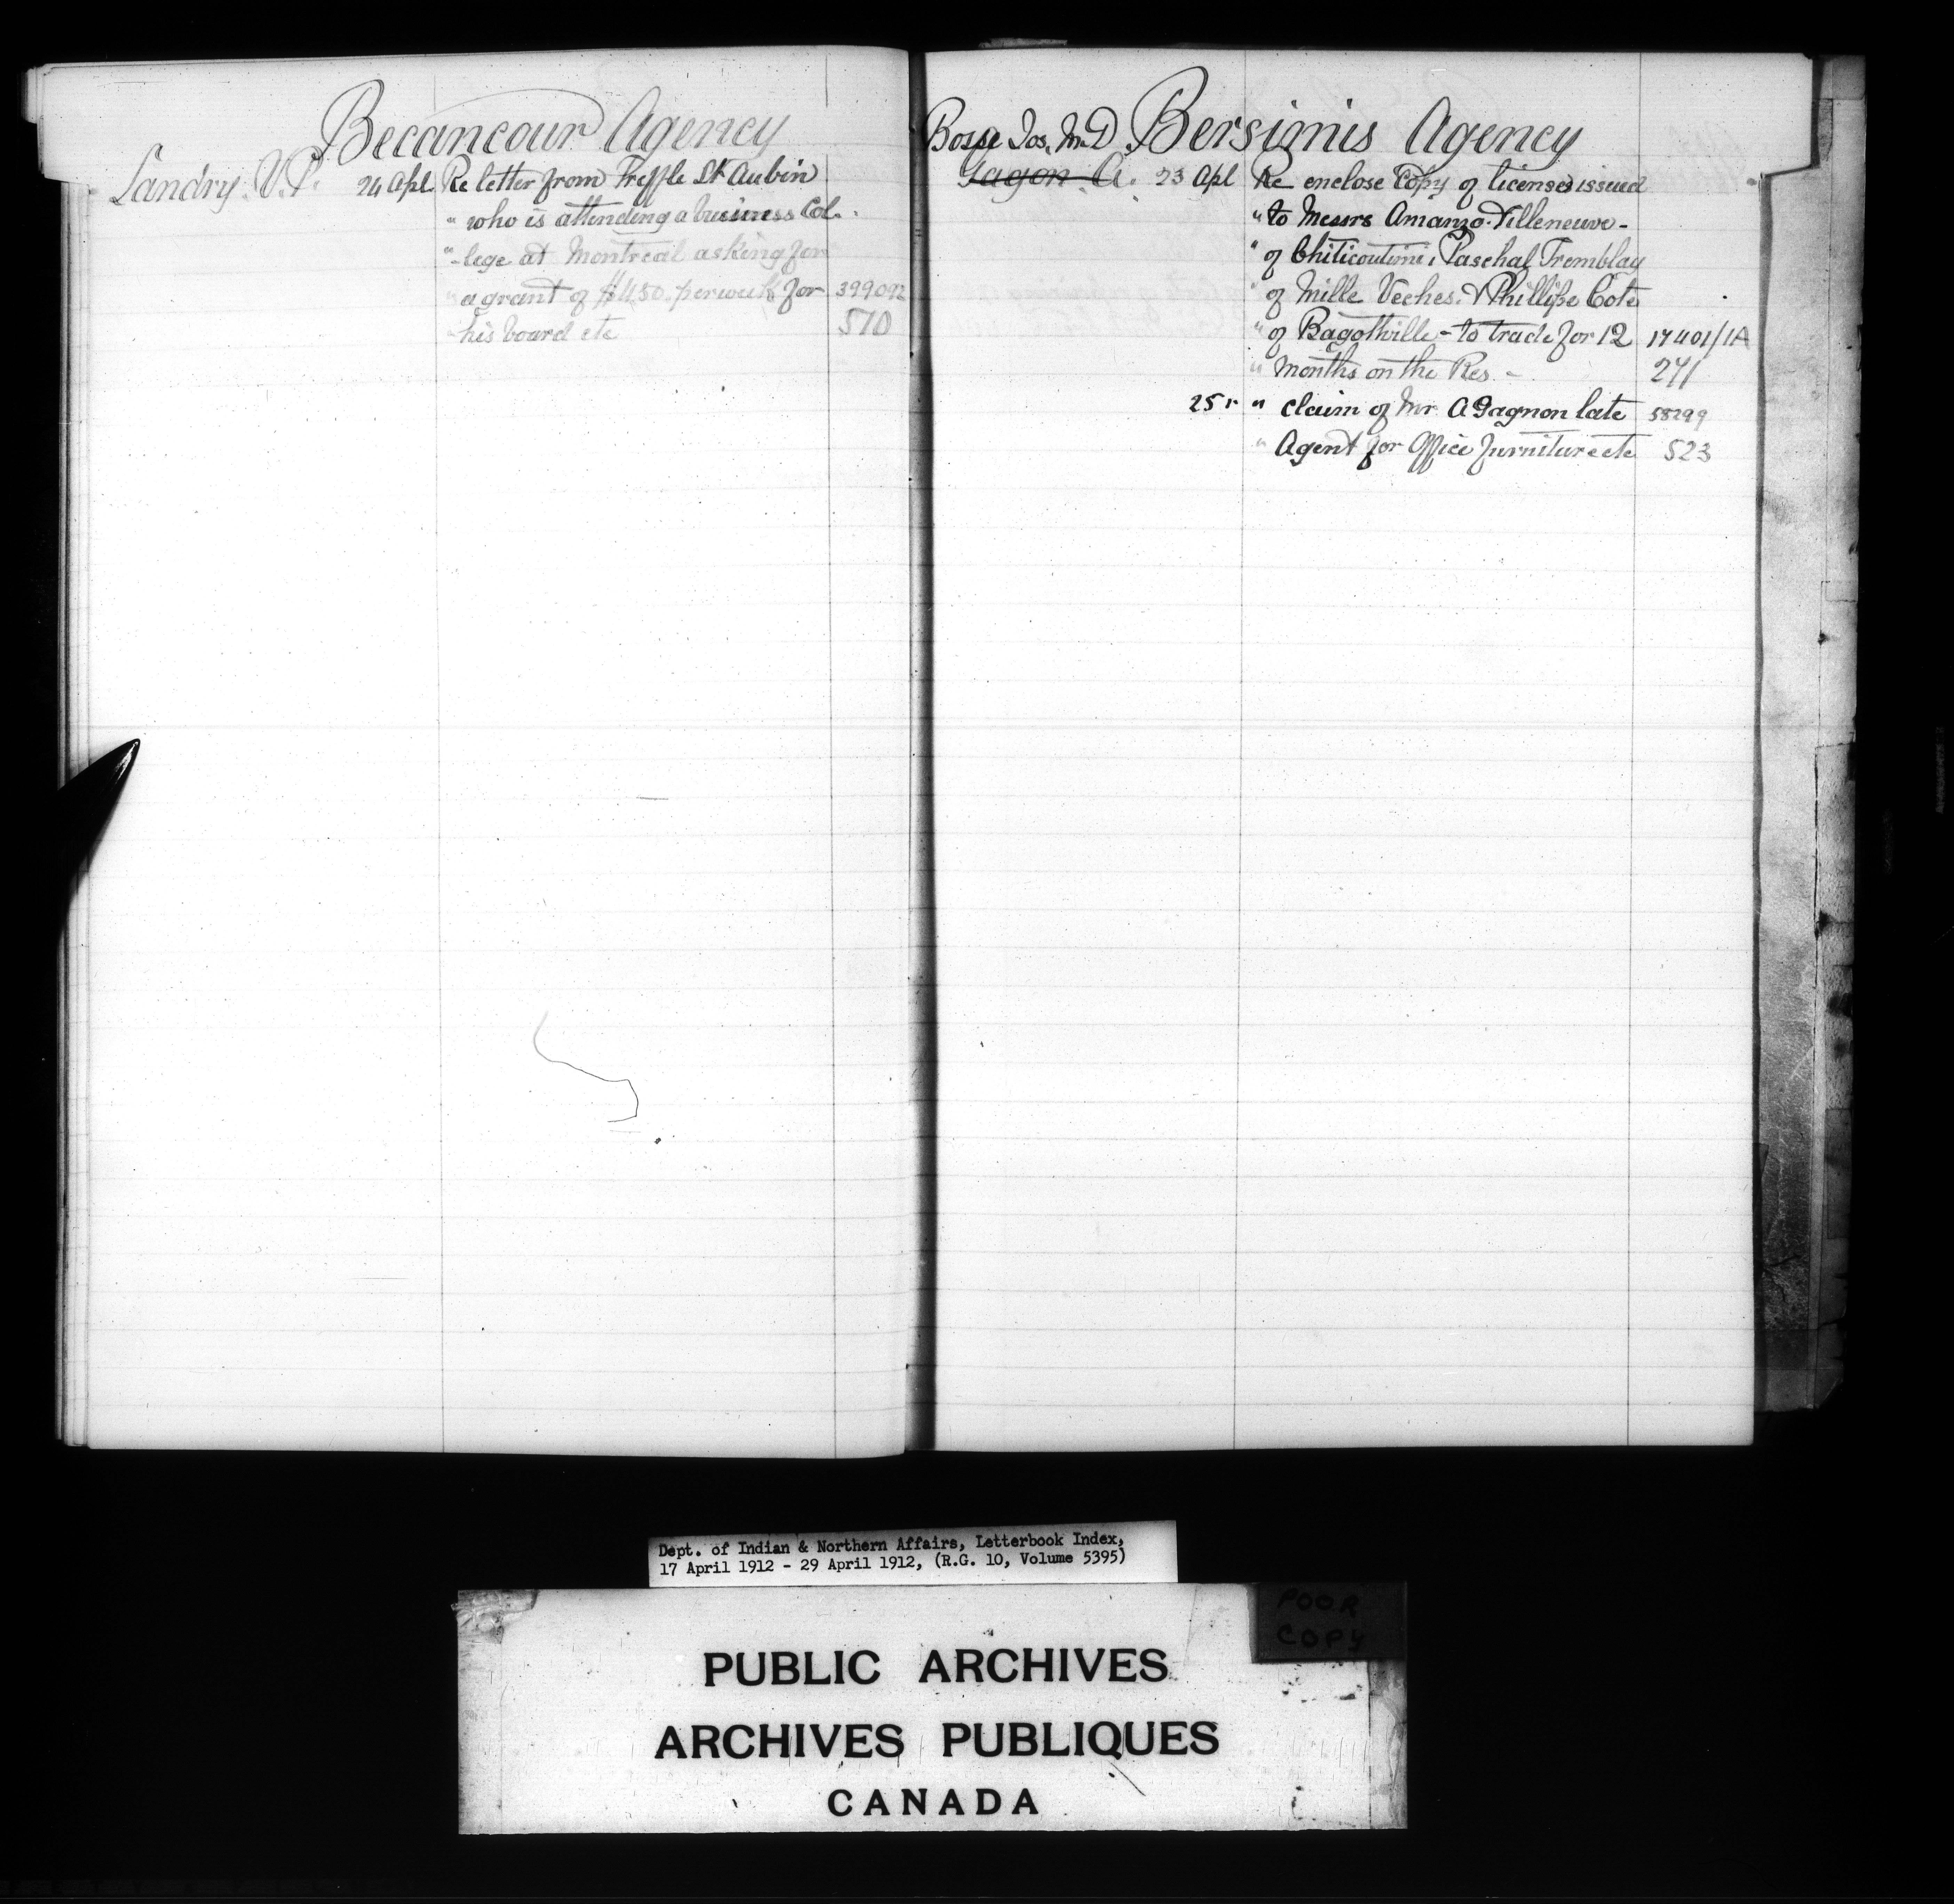 Becancour Agency
Landry. V.P. 24 Apl Re letter from Treffle St Aubin
" who is attending a business Col.
" -lege at Montreal asking for
" a grant of $4.50. per week for 399092
" his board etc 570
Bosse Jos, M.D. Bersimis Agency
Gagon A. 23 Apl Re enclose Copy of licenses issued
" to Messrs Amanzo Villeneuve -
" of Chiticoutimi, Paschal Tremblay
" of Mille Veches. & Phillipe Cote
" of Bagottville - to trade for 12 17401/1A
" months on the Res - 271
25 " " claim of Mr A Gagnon late 58299
" Agent for Office furniture etc 523
Dept. of Indian & Northern Affairs, Letterbook Index,
17 April 1912 - 29 April 1912, (R.G. 10, Volume 5395)
POOR
COPY
PUBLIC ARCHIVES
ARCHIVES PUBLIQUES
CANADA